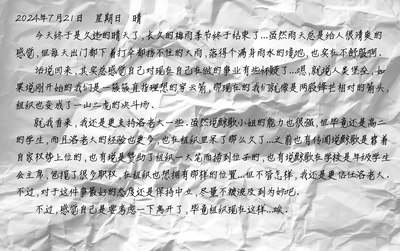 2024年7月21日 星期日 晴
今天终于是久违的晴天了，长久的梅雨季节终于结束了…虽然雨天总是给人很清爽的
感觉，但每天出门都下着打伞都挡不住的大雨，落得个满身雨水的境地，也实在不舒服啊.
话说回来，其实总感觉自己对现在自己在做的事业有些怀疑了…嗯，就说人类坐立，如
果说刚开始的我们是一簇簇直指理想的穿云箭，那现在的我们就像是两股阵拦相对的箭头，
组织也变成了一山二虎的决斗场.
就我看来，我还是更支持洛老大一些.虽然说默歌小姐的能力也很强，但毕竟还是高二
的学生，而且洛老大的经验也更多，也在组织里呆了那么久了…之前也有传闻说默歌是靠着
自家权势上位的，也有说是赞助了组织一大笔而捞到位子的，也有说默歌在学校是年级学生
会主席，包揽了很多职权，在组织也想拥有那样的位置…但不管怎样，我还是更信任洛老大.
不过，对于这件事最好的态度还是保持中立，尽量不被波及到为好吧.
不过，感觉自己是要考虑一下离开了，毕竟组织现在这样…唉.